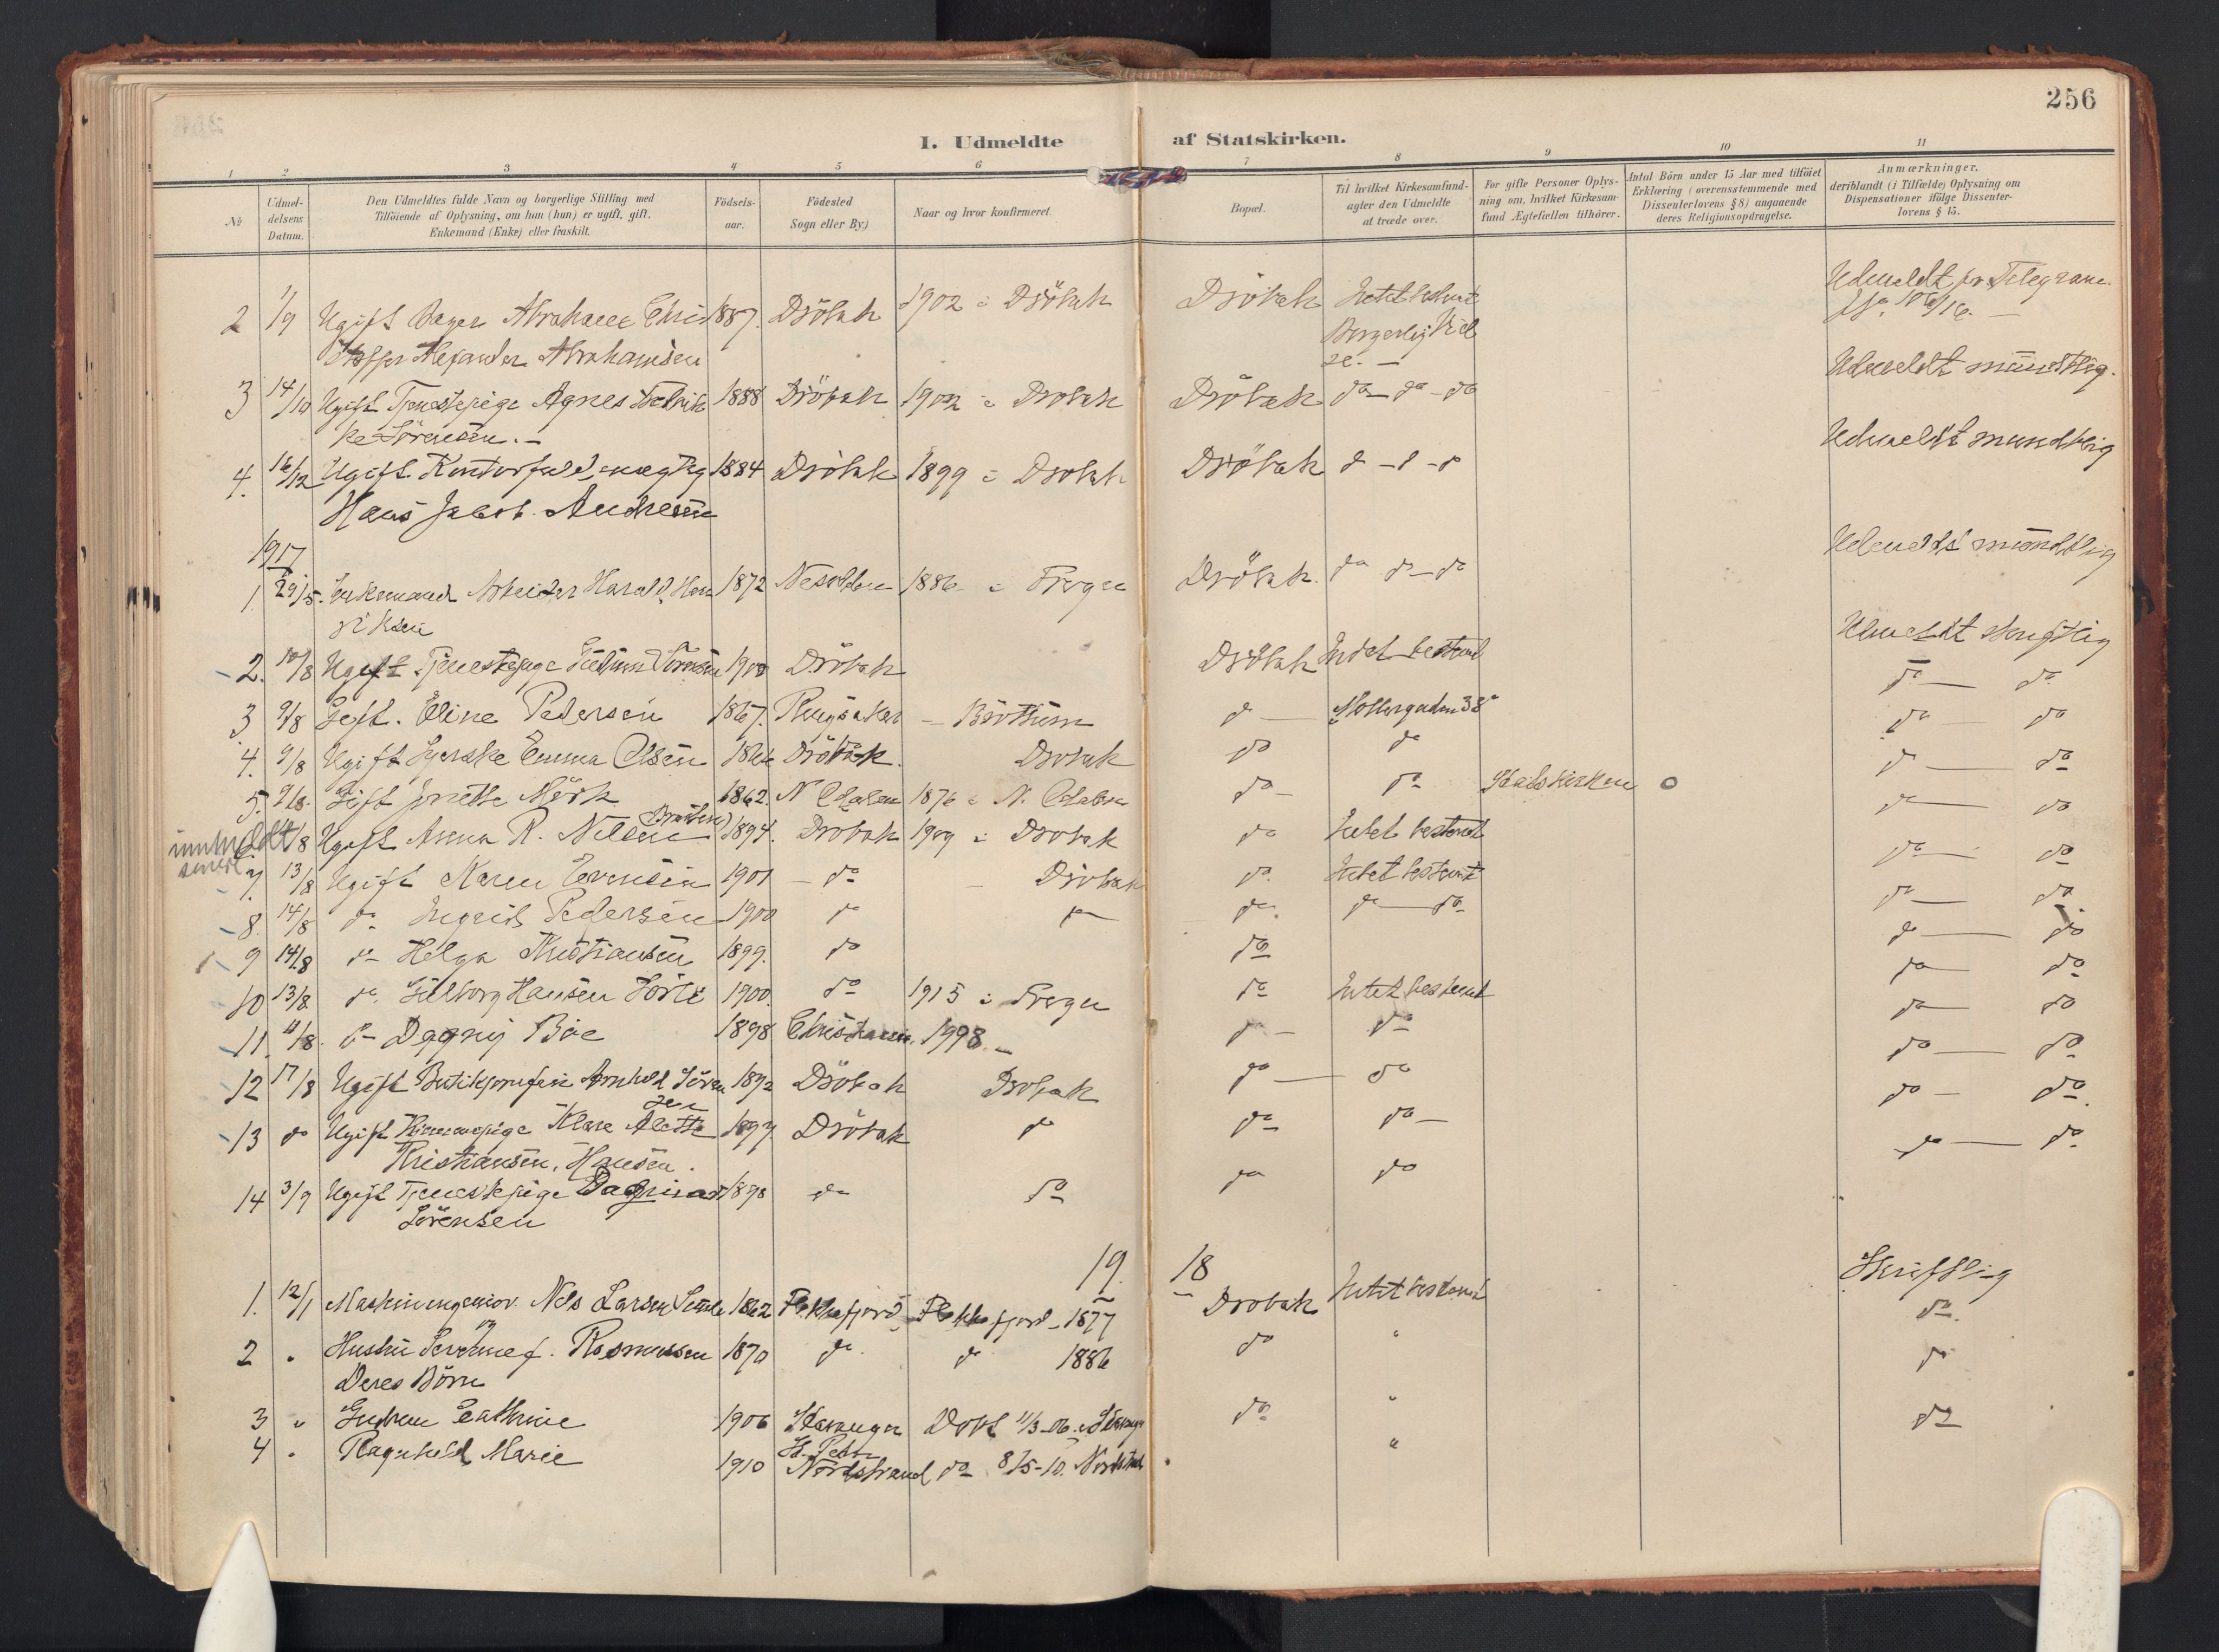 256
1. Udmeldte af Statskirken.
1 2 3 4 5 6 7 8 9 10 11
No
Udmeldelsens Datum.
Den Udmeldtes fulde Navn og borgerlige Stilling med
Tilföiende af Oplysning, om han (hun) er ugift, gift,
Enkemand (Enke) eller fraskilt.
Födselsaar.
Födested
Sogn eller By)
Naar og hvor konfirmeret.
Bopæl.
Til hvilket Kirkesamfund
agter den Udmeldte
at træde over.
For gifte Personer Oplysning om, hvilket Kirkesamfund Ægtefællen tilhörer.
Antal Börn under 15 Aar med tilföiet
Erklæring (overensstemmende med
Dissenterlovens § 8) angaaende
deres Religionsopdragelse.
Anmærkninger,
deriblandt (i Tilfælde) Oplysning om
Dispensationer ifölge Dissenterlovens § 15.
2 1/9 Ugift Abraham Chri 1887. Dröbak 1902 i Dröbak Dröbak Intet bestemt Udmeldt pr Telegram
stoffer Alexander Abrahamsen Borgerlig Viel
se. —
3 14/10 Ugift Tjenestepige Agnes Hedvik 1888 Dröbak 1902 i Drobak Dröbak do — do — do Udmeldt mundtlig.
ke Sörensen. —
4. 16/12 Ugift Kontorfuldmægtig 1884 Dröbak 1899 i Drobak Dröbak d - d - d Udmeldt mundtlig
Hans Jakob Andresen
1917
1 29/5. Enkemand Arbeider Harald Hen 1872 Nesodden 1886 i Frogn Dröbak. do do - do Udmeldt mundtlig
riksen
2. 10/8 Ugift Tjenestepige Sörensen 1900 Dröbak Dröbak Intet bestemt Udmeldt skriftlig
3 9/8 Gift. Eline Pedersen 1867. Ringsaker — Bröttum d — Möllergaden 38 do — do
4. 9/8 Ugift Syerske Emma Olsen Dröbak. Drobak do do do — do
5. 9/8. Gift Jonette Mörk 1862. N Odalen 1876 i N. Odalen do - do Statskirken 0 d — do
innmeldt senere /8 Ugift Anna R. Nilsen 1894. Dröbak 1909 i Drobak do Intet bestemt do — do
7. 13/8 Ugift Karen Evensen 1901 — do — Dröbak do. Intet bestemt do — do
8. 14/8 do Ingrid Pedersen 1900 do do do. do — do do — do
9 14/8 do Helga Kristiansen 1899. do do do — do
10 13/8. do. Hansen 1900. do 1915 i Frogn do Intet bestemt do — do
11. 11/8. do Dagny Boe 1898 Christiania. do - do do — do
12 17/8 Ugift Arnhold Sören 1892 Dröbak Drobak do — do do — do
sen
13 do Ugift Klara Alette 1897. Dröbak do do do — do — do.
Kristiansen, Hansen.
14 3/9 Ugift Tjenestepige Dagmar 1898 do do do do do — do.
Sörensen
19 18
1. 12/1 Maskiningeniör Nils Larsen 1862 Flekkefjord Flekkefjord - 1877 Drobak Intet bestemt Skriftlig
2 " Hustru f. Rasmussen 1870 do. do 1886 do " do.
Deres Börn
3 " Gudrun Cathrine 1906 Stavanger Döbt 11/3-06. i Stavanger do " do
4 " Ragnhild Marie 1910 Nordstrand do 8/5-10. Nordstrand " do